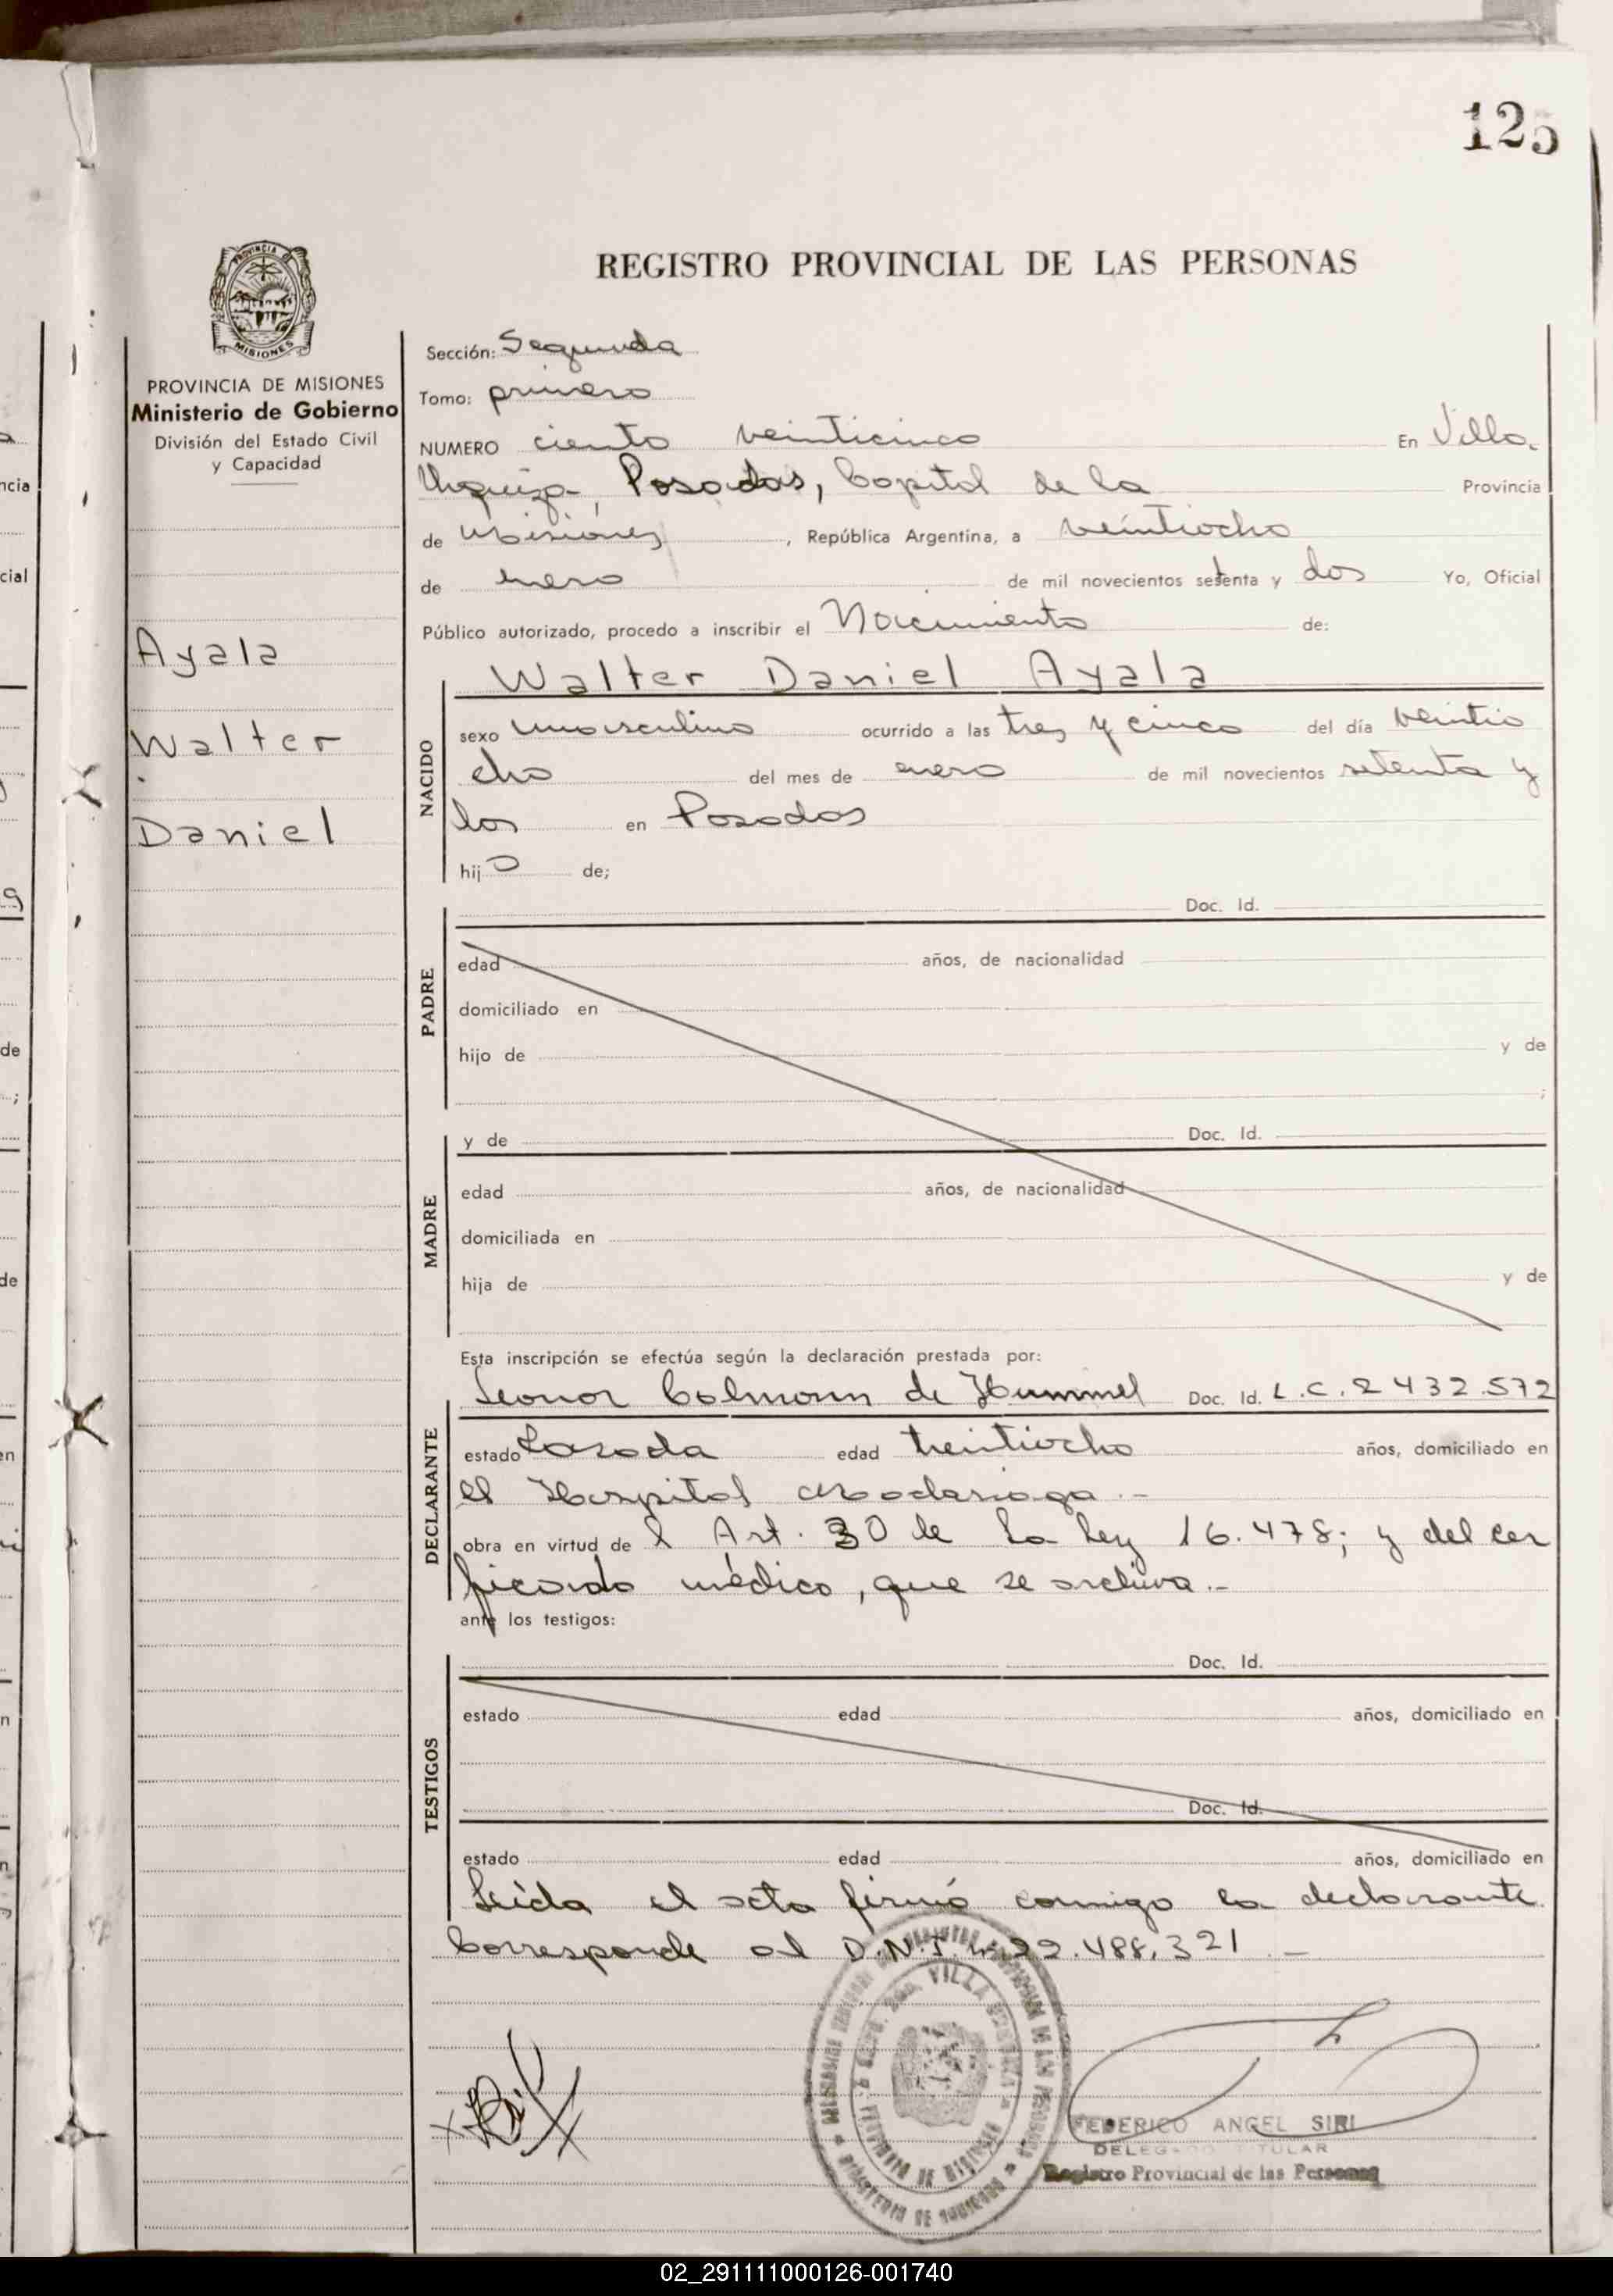 125
PROVINCIA
MISIONES
REGISTRO PROVINCIAL DE LAS PERSONAS
PROVINCIA DE MISIONES
Ministerio de Gobierno
División del Estado Civil
y Capacidad
Ayala
Walter
Daniel
Sección: Segunda
Tomo: primero
NUMERO ciento veinticinco En Villa
Urquiza, Posadas, Capital de la Provincia
de Misiones, República Argentina, a veintiocho
de enero de mil novecientos setenta y dos Yo, Oficial
Público autorizado, procedo a inscribir el Nacimiento de:
Walter Daniel Ayala
NACIDO
sexo masculino ocurrido a las tres y cinco del día veintio
cho del mes de enero de mil novecientos setenta y
dos en Posadas
hijo de;
PADRE
Doc. Id.
edad años, de nacionalidad
domiciliado en
hijo de y de
;
MADRE
y de Doc. Id.
edad años, de nacionalidad
domiciliada en
hija de y de
Esta inscripción se efectúa según la declaración prestada por:
DECLARANTE
Leonor Colmann de Hummel Doc. Id. L.C. 2 432.572
estado Casada edad treintiocho años, domiciliado en
el Hospital Madariaga.-
obra en virtud de l Art. 30 de la Ley 16.478; y del cer
ficado médico, que se archiva.-
ante los testigos:
TESTIGOS
Doc. Id.
estado edad años, domiciliado en
Doc. Id.
estado edad años, domiciliado en
Leída el acta firmó conmigo la declarante.
Corresponde al D.N.I. nº 22.488.321.-
FEDERICO ANGEL SIRI
DELEGADO TITULAR
Registro Provincial de las Personas
02_291111000126-001740